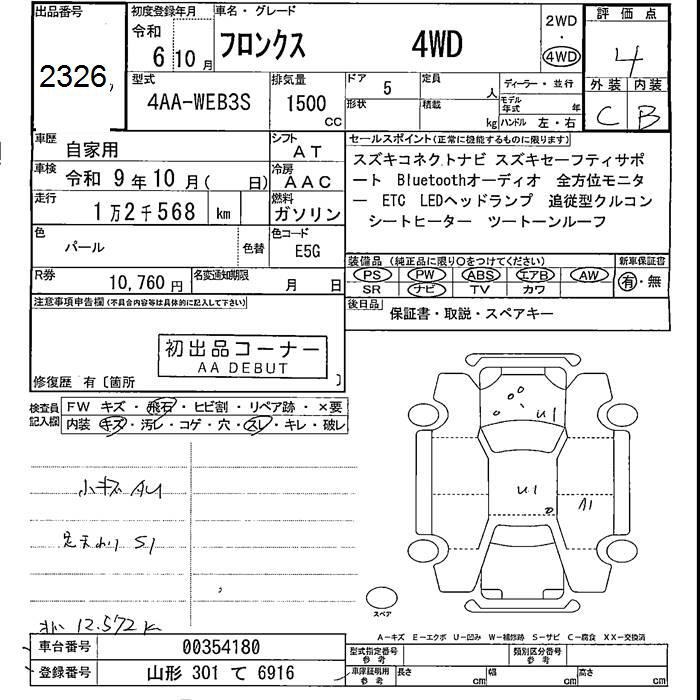 出品番号
2326,
初度登録年月
令和
6 10 月
車名・グレード
フロンクス 4WD
2WD
・
4WD
評価点
4
外装 内装
C B
型式
4AA-WEB3S
排気量
1500 cc
ドア 5
形状
定員 人
積載 kg
ディーラー・並行
モデル年式 年
ハンドル 左・右
車歴 自家用
シフト AT
車検 令和 9年10月( 日)
冷房 AAC
走行 1万2千568 km
燃料 ガソリン
色 パール 色替
色コード E5G
R券 10,760円
名変通知期限 月 日
セールスポイント(正常に機能するものに限ります)
スズキコネクトナビ スズキセーフティサポ
ート Bluetoothオーディオ 全方位モニタ
ー ETC LEDヘッドランプ 追従型クルコン
シートヒーター ツートーンルーフ
装備品(純正品に限り○をつけてください)
PS PW ABS エアB AW
SR ナビ TV カワ
新車保証書
有・無
後日品 保証書・取説・スペアキー
注意事項申告欄(不具合内容等は具体的に記入して下さい)
初出品コーナー
AA DEBUT
修復歴 有〔箇所 〕
検査員記入欄
FW キズ・飛石・ヒビ割・リペア跡・×要
内装 キズ・汚レ・コゲ・穴・スレ・キレ・破レ
小キズ AU
S1
12.572 K
U1
U1
A1
スペア
A-キズ E-エクボ U-凹み W-補修跡 S-サビ C-腐食 XX-交換済
車台番号 00354180
登録番号 山形 301 て 6916
型式指定番号 参考
類別区分番号 参考
車庫証明用 参考
長さ cm 幅 cm 高さ cm